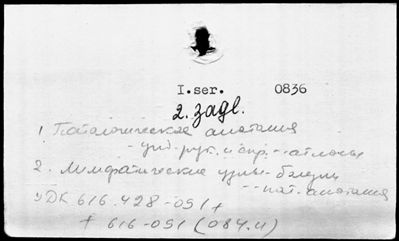 I.ser. 0836
2. zagl.
1 Патологическая анатомия
- учд. рук. и спр. - атласы
2. Лимфатические узлы - болезни
- - пат. анатомия
УДК 616.428-091 +
+ 616-091 (084.4)